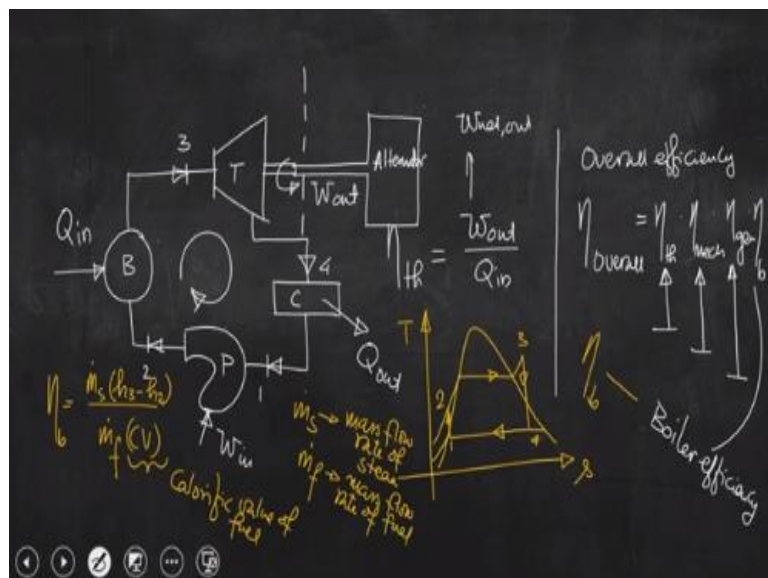 3
T
Alternator
Wout
Wnet,out
ηth = Wout
Qin
Qin
B
4
C
Qout
P
2
1
Win
Overall efficiency
ηoverall = ηth . ηmech . ηgen ηb
ηb
Boiler efficiency
ηb = ṁs (h3-h2)
ṁf (CV)
Calorific value of
fuel
ṁs → mass flow
rate of
steam
ṁf → mass flow
rate of fuel
T
3
2
1
4
s